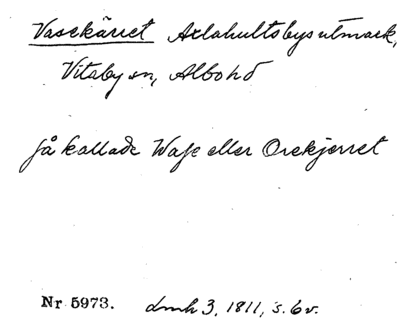 Vasekärret Axlahultsbys utmark,
Vitaby sn, Albo hd
så kallade Wase eller Orekjerret
Nr 5973. dmh 3, 1811, s. 6 v.